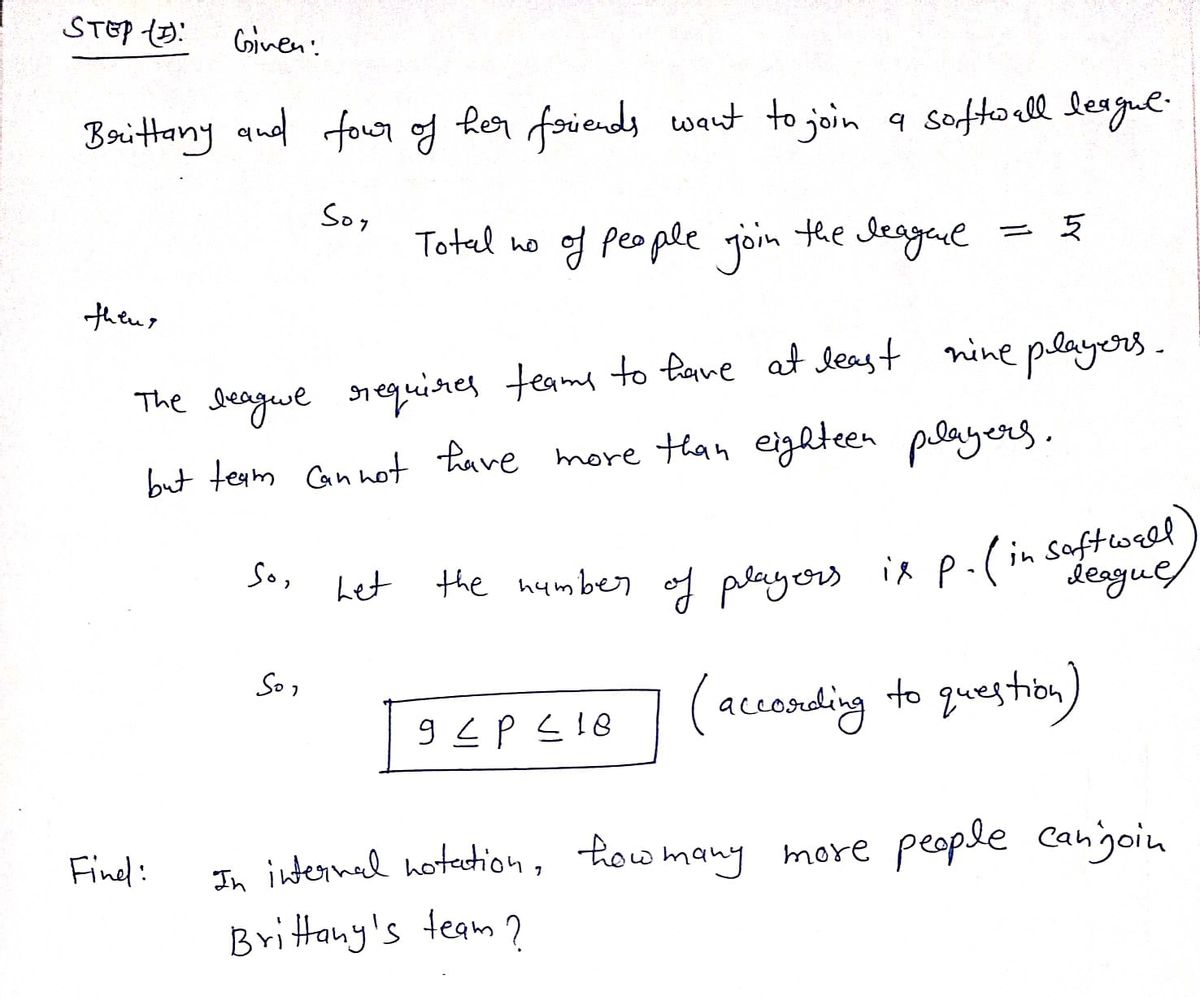 STEP (I): Given:
Brittany and four of her friends want to join a softwall league.
So, Total no of people join the league = 5
then,
The league requires teams to have at least nine players.
but team cannot have more than eighteen players.
So, Let the number of players is p. (in softwall league)
So, 9 ≤ p ≤ 18 (according to question)
Find: In internal notation, how many more people can join
Brittany's team?